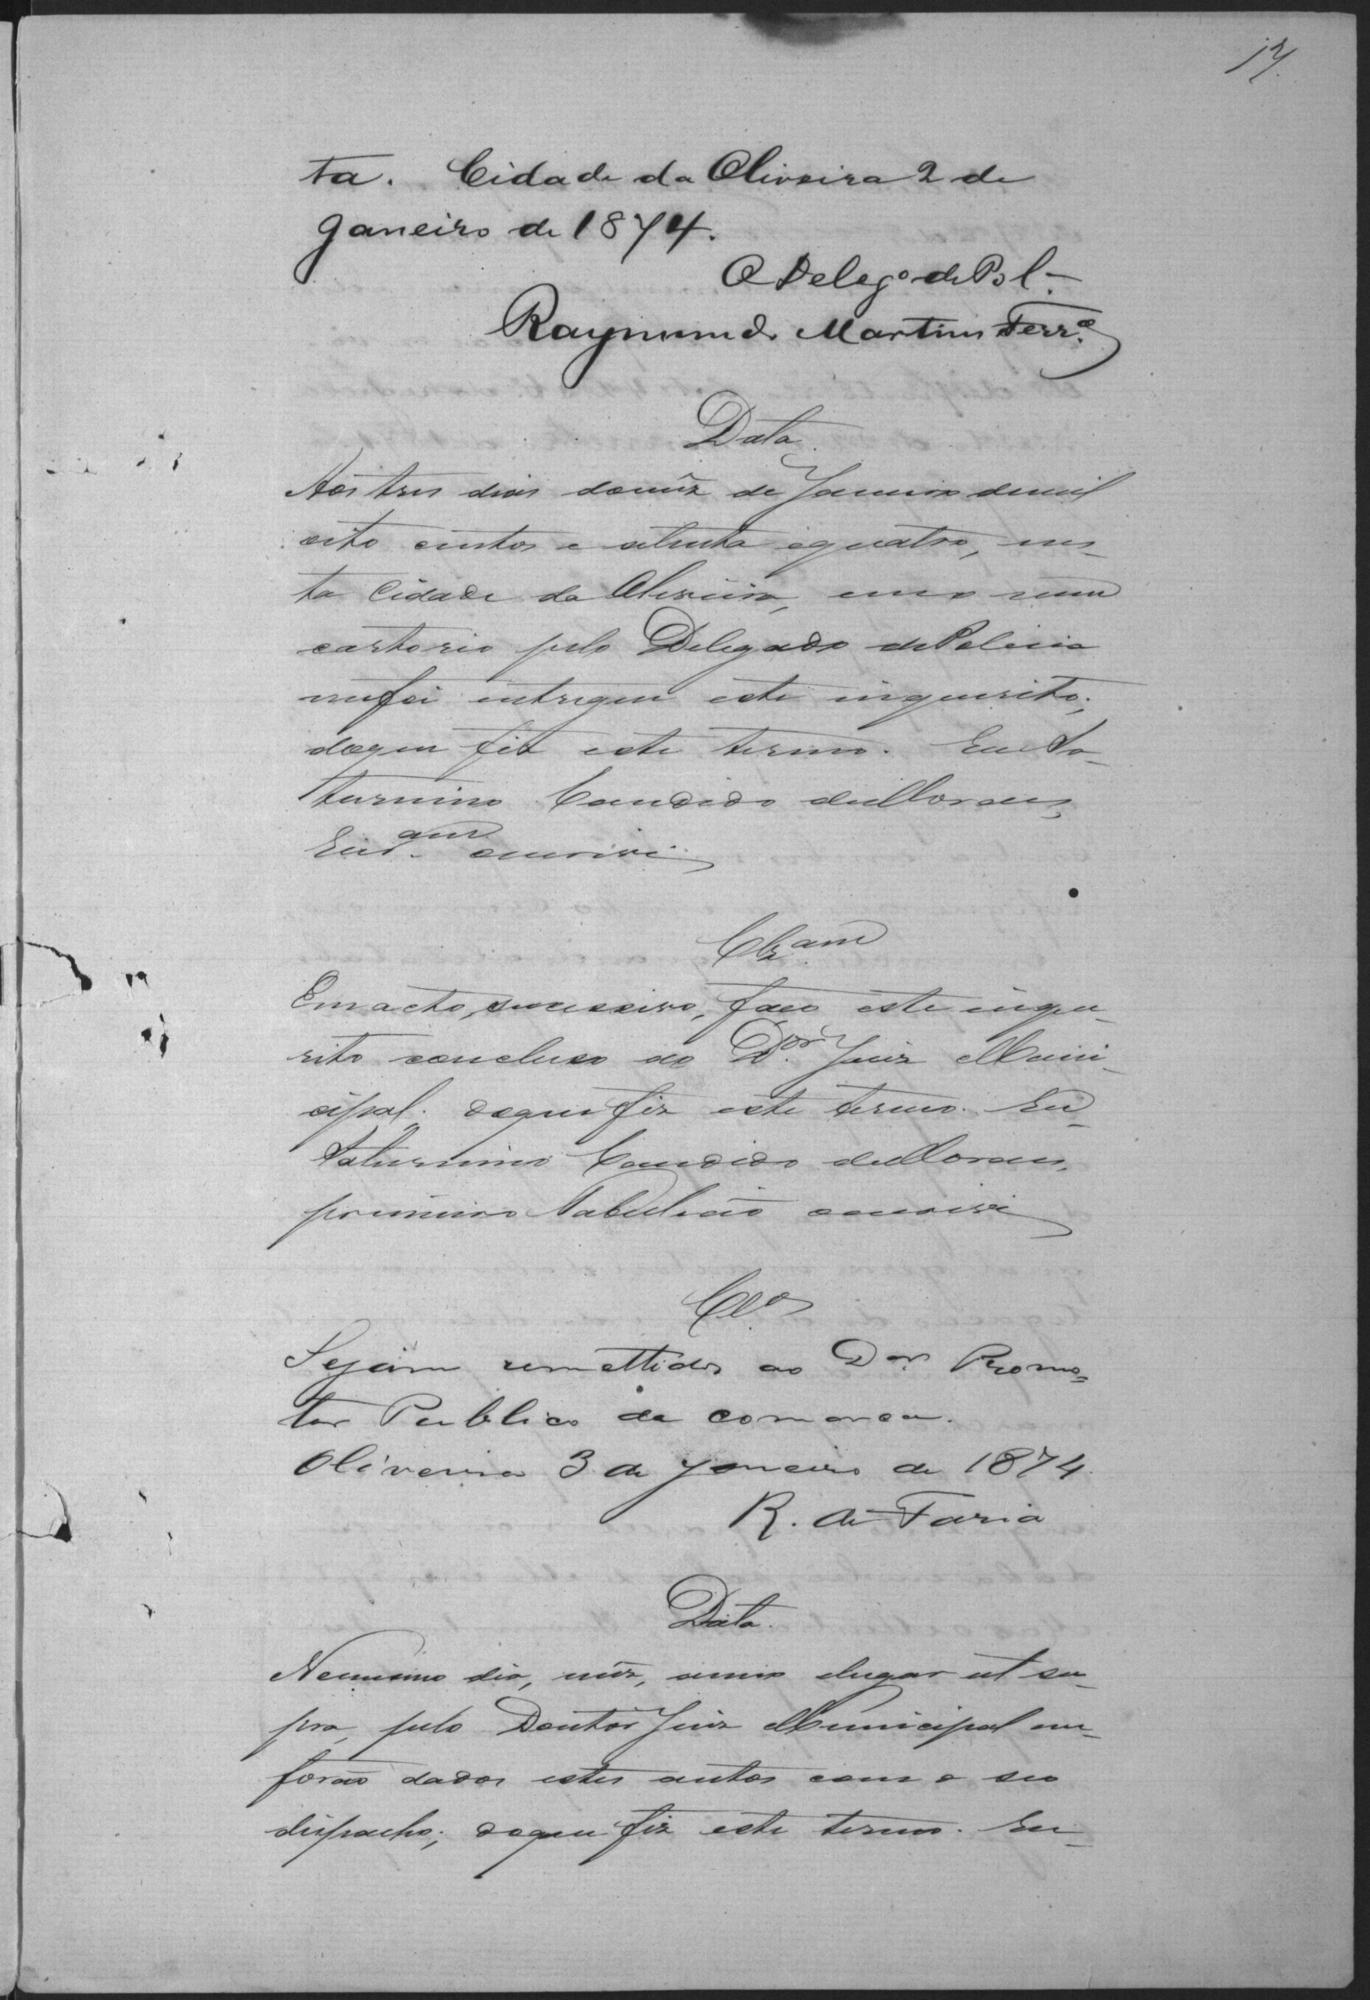 17.
ta. Cidade da Oliveira 2 de
Janeiro de 1874.
O Deleg.º de Pol.
Raymundo Martins Ferr.ª
Data
Aos tres dias do mêz de Janeiro demil
oito centos e setenta equatro, nes-
ta Cidade da Oliveira, emo meu
cartorio pelo Delegado de Policia
mefoi entregue este inquerito;
doque fiz este termo. Eu Sa-
turnino Candido deMoraes,
Escr.am escrivi
Clz.am
Em acto, sucessivo, faço este inque-
rito concluso ao D.or Juiz Muni-
cipal. doque fiz este termo. Eu
Saturnino Candido deMoraes,
primeiro Tabelião escrivi
Cl.os
Sejam remettidos ao D.or Promo-
tor Publico da comarca.
Oliveira 3 de Janeiro de 1874.
R. de Faria
Data.
Nomesmo dia, mêz, anno elugar ut su-
pra, pelo Doutor Juiz Municipal me-
forão dados estes autos com o seo
dispacho; doque fiz este termo. Eu